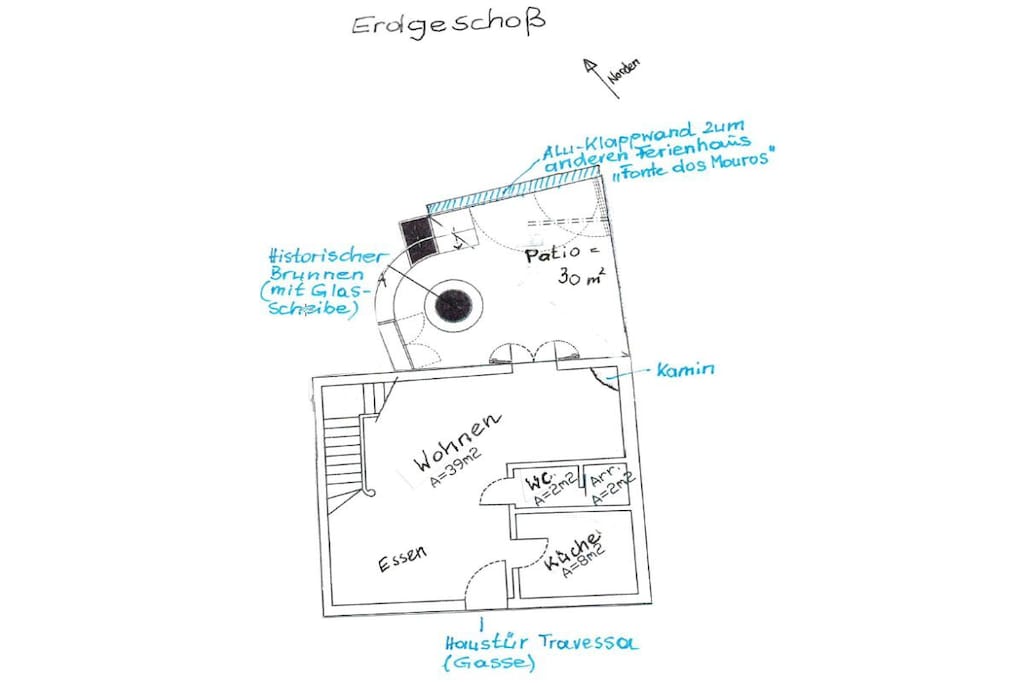 Erdgeschoß
Norden
Alu-Klappwand zum
anderen Ferienhaus
"Fonte dos Mouros"
Historischer
Brunnen
(mit Glas-
scheibe)
Patio =
30 m²
Kamin
Wohnen
A=39m2
WC.
A=2m2
Arr.
A=2m2
Essen
Küche
A=8m2
Haustür Travessa
(Gasse)